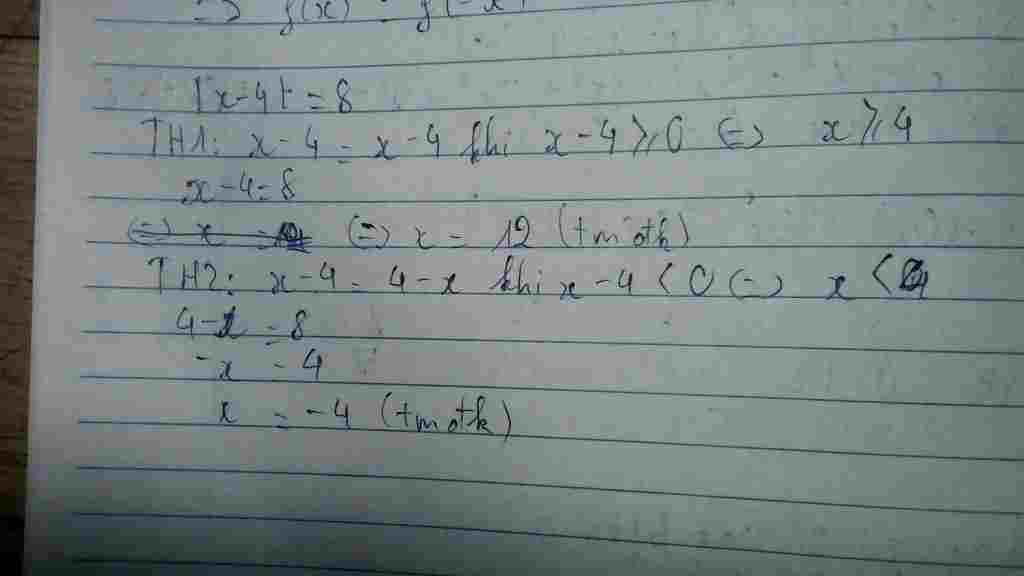 => f(x) = f(-x)
|x-4| = 8
TH1: x-4 = x-4 khi x-4 ≥ 0 (=) x ≥ 4
x-4=8
(=) x = 12 (tmđk)
TH2: x-4 = 4-x khi x-4 < 0 (=) x < 4
4-x = 8
-x = 4
x = -4 (tmđk)